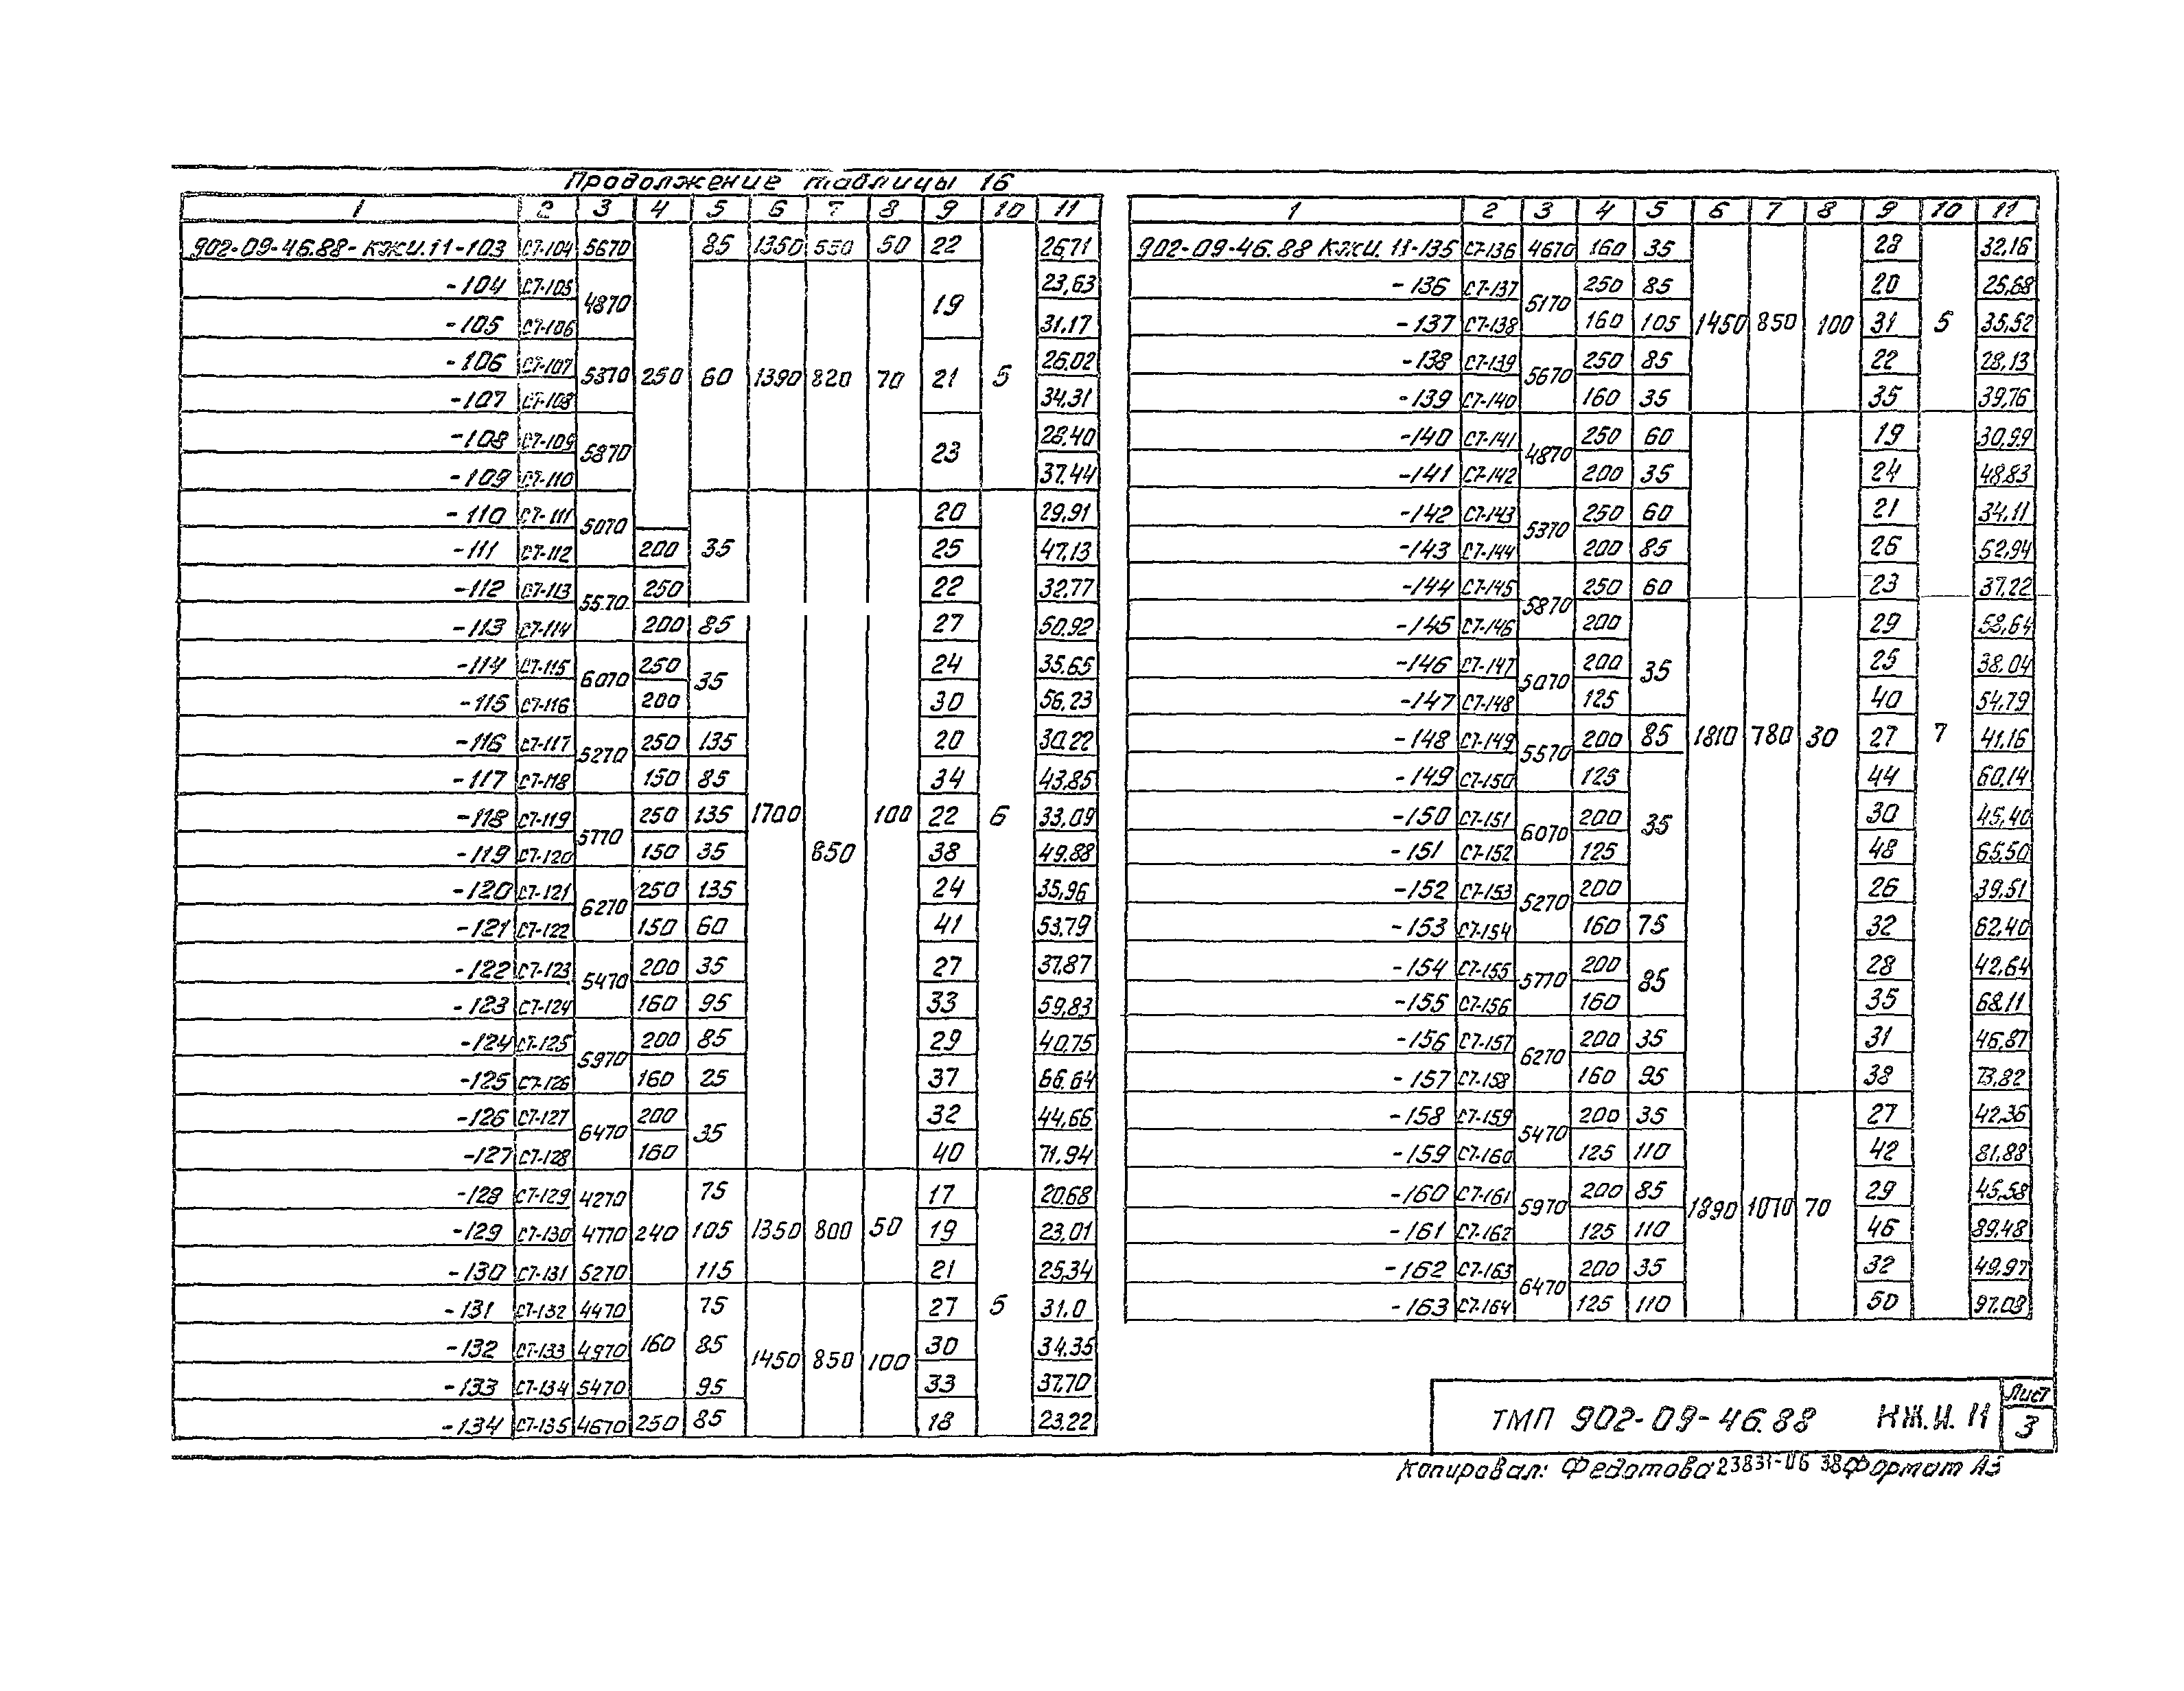 Продолжение таблицы 16
1 2 3 4 5 6 7 8 9 10 11
902-09-46.88-КЖИ.11-103 С7-104 5670 85 1350 550 50 22 26,71
-104 С7-105 4870 19 23,63
-105 С7-106 31,17
-106 С7-107 5370 250 60 1390 820 70 21 5 26.02
-107 С7-108 34,31
-108 С7-109 5870 23 28,40
-109 С7-110 37.44
-110 С7-111 5070 20 29,91
-111 С7-112 200 35 25 47,13
-112 С7-113 5570 250 22 32,77
-113 С7-114 200 85 27 50.92
-114 С7-115 6070 250 35 24 35.65
-115 С7-116 200 30 56,23
-116 С7-117 5270 250 135 20 30.22
-117 С7-118 150 85 34 43,85
-118 С7-119 5770 250 135 1700 100 22 6 33,09
-119 С7-120 150 35 850 38 49.88
-120 С7-121 6270 250 135 24 35,96
-121 С7-122 150 60 41 53,79
-122 С7-123 5470 200 35 27 37,87
-123 С7-124 160 95 33 59,83
-124 С7-125 5970 200 85 29 40,75
-125 С7-126 160 25 37 66.64
-126 С7-127 6470 200 35 32 44,66
-127 С7-128 160 40 71.94
-128 С7-129 4270 75 17 20,68
-129 С7-130 4770 240 105 1350 800 50 19 23,01
-130 С7-131 5270 115 21 25,34
-131 С7-132 4470 75 27 5 31.0
-132 С7-133 4970 160 85 1450 850 100 30 34.35
-133 С7-134 5470 95 33 37,70
-134 С7-135 4670 250 85 18 23,22
1 2 3 4 5 6 7 8 9 10 11
902-09-46.88 КЖИ. 11-135 С7-136 4670 160 35 28 32,16
-136 С7-137 5170 250 85 20 25,68
-137 С7-138 160 105 1450 850 100 31 5 35,52
-138 С7-139 5670 250 85 22 28,13
-139 С7-140 160 35 35 39,76
-140 С7-141 4870 250 60 19 30,99
-141 С7-142 200 35 24 48,83
-142 С7-143 5370 250 60 21 34,11
-143 С7-144 200 85 26 52,94
-144 С7-145 5870 250 60 23 37,22
-145 С7-146 200 29 58,64
-146 С7-147 5070 200 35 25 38,04
-147 С7-148 125 40 54,79
-148 С7-149 5570 200 85 1810 780 30 27 7 41,16
-149 С7-150 125 44 60,14
-150 С7-151 6070 200 35 30 45,40
-151 С7-152 125 48 65,50
-152 С7-153 5270 200 26 39,51
-153 С7-154 160 75 32 62,40
-154 С7-155 5770 200 85 28 42,64
-155 С7-156 160 35 68,11
-156 С7-157 6270 200 35 31 46,87
-157 С7-158 160 95 38 73,82
-158 С7-159 5470 200 35 27 42,36
-159 С7-160 125 110 42 81,88
-160 С7-161 5970 200 85 1890 1070 70 29 45,58
-161 С7-162 125 110 46 89,48
-162 С7-163 6470 200 35 32 49,97
-163 С7-164 125 110 50 97,08
ТМП 902-09-46.88 КЖ.И. 11
Лист
3
Копировал: Федотова 23831-06 38 Формат А3